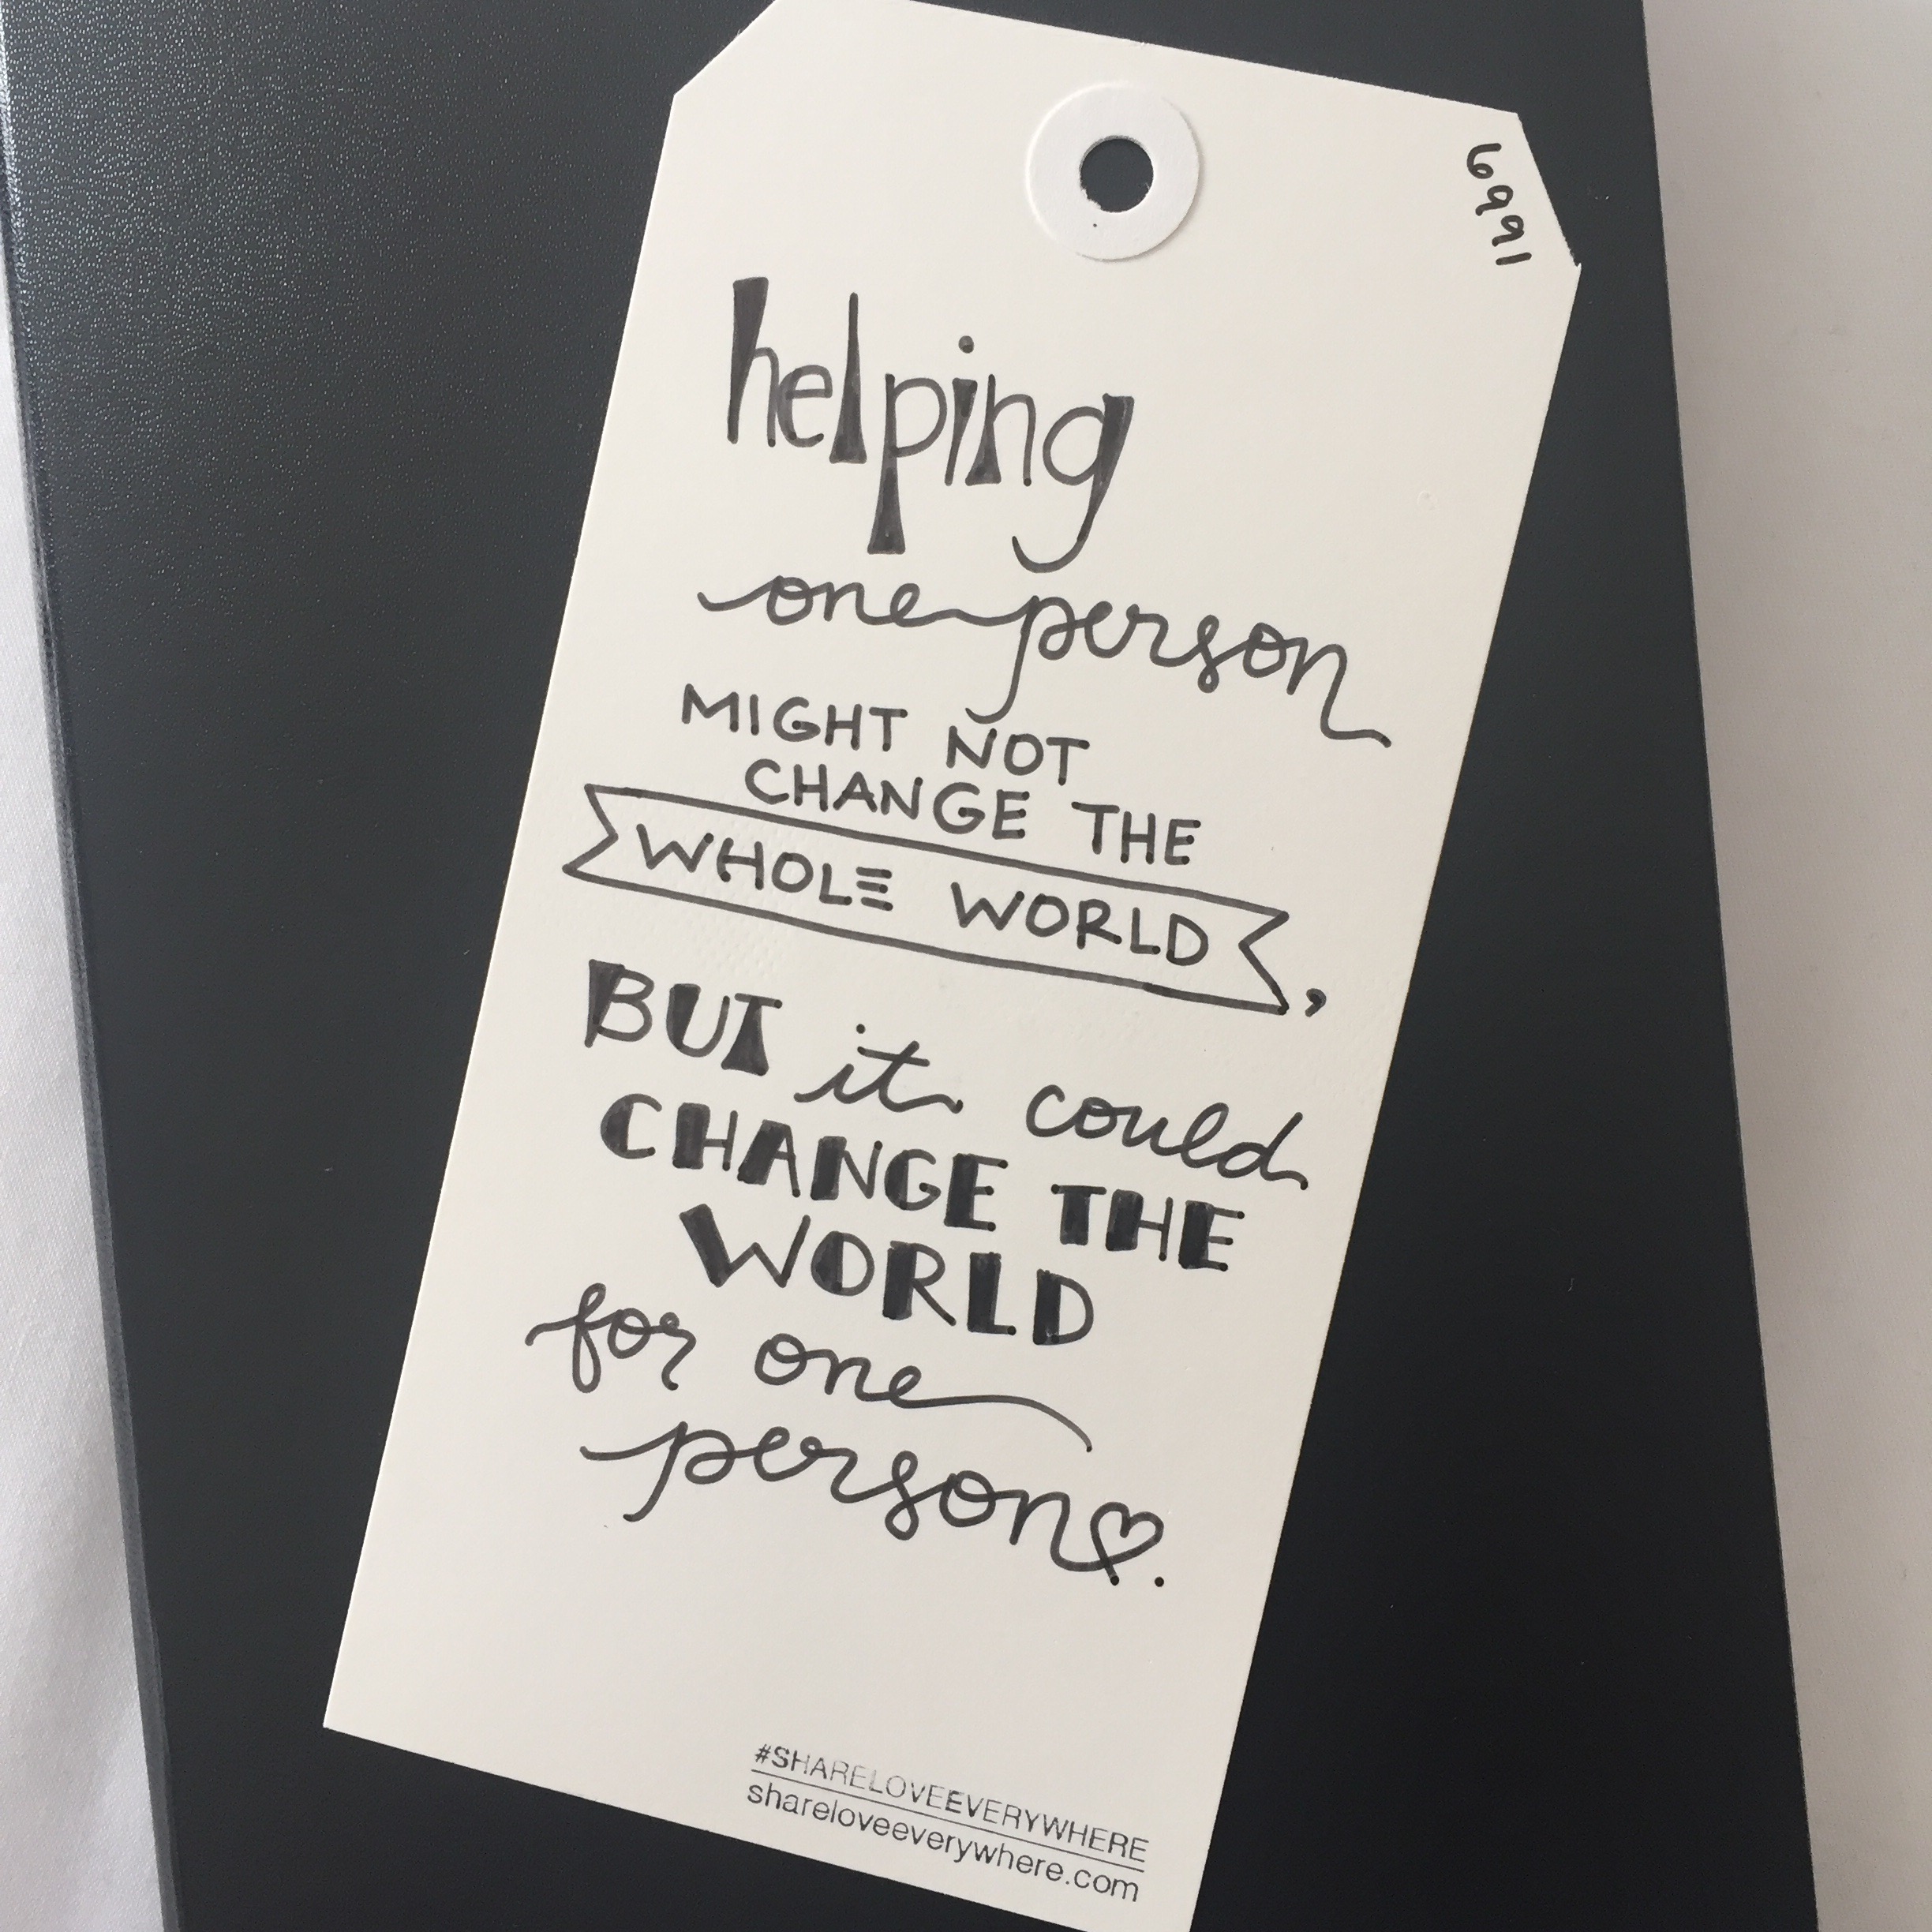 6991
helping
one person
MIGHT NOT
CHANGE THE
WHOLE WORLD,
BUT it could
CHANGE THE
WORLD
for one
person♡.
#SHARELOVEEVERYWHERE
shareloveeverywhere.com